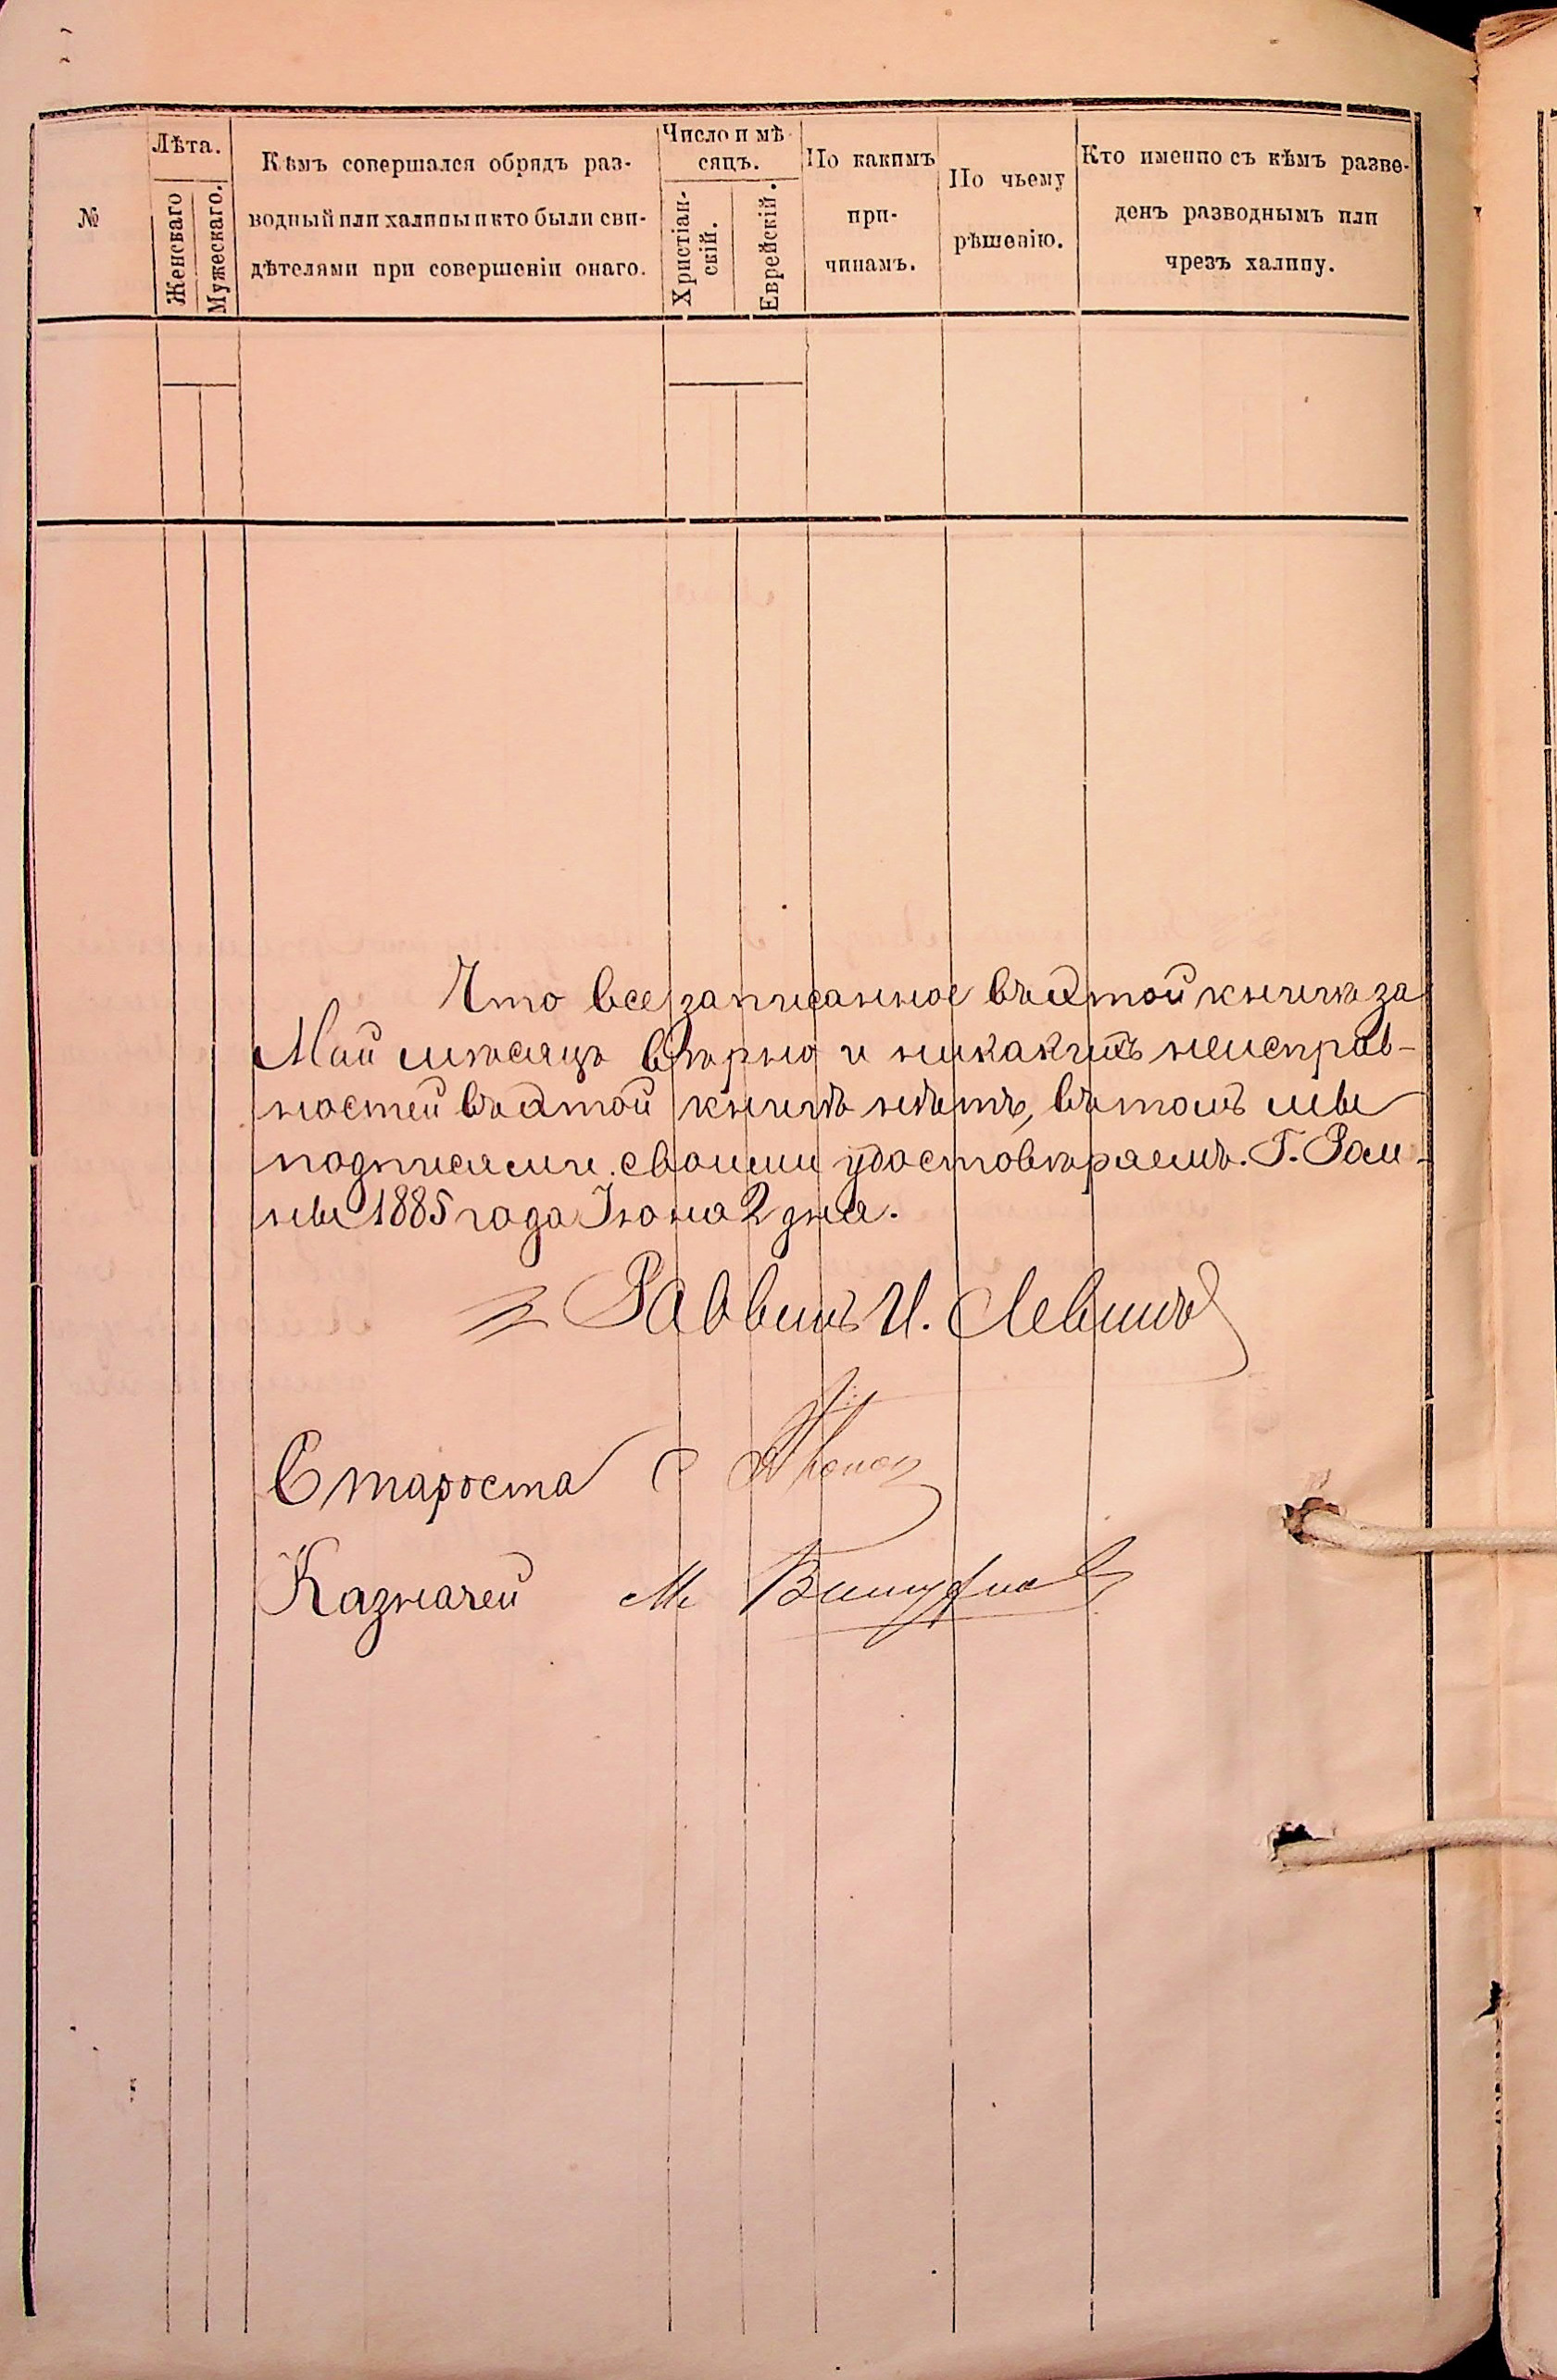 №
Лѣта.
Женскаго
Мужескаго.
Кѣмъ совершался обрядъ раз-
водный или халицы и кто были сви-
дѣтелями при совершеніи онаго.
Число и мѣ-
сяцъ.
Христіан-
скій.
Еврейскій.
По какимъ
при-
чинамъ.
По чьему
рѣшенію.
Кто именно съ кѣмъ разве-
денъ разводнымъ или
чрезъ халицу.
Что все записанное въ этой книгѣ за
Май мѣсяцъ вѣрно и никакихъ неисправ-
ностей въ этой книгѣ нѣтъ, въ томъ мы
подписями своими удостовѣряемъ. Г. Ром-
ны 1885 года Іюня 2 дня.
Раввинъ И. Левинъ
Староста
Казначей М